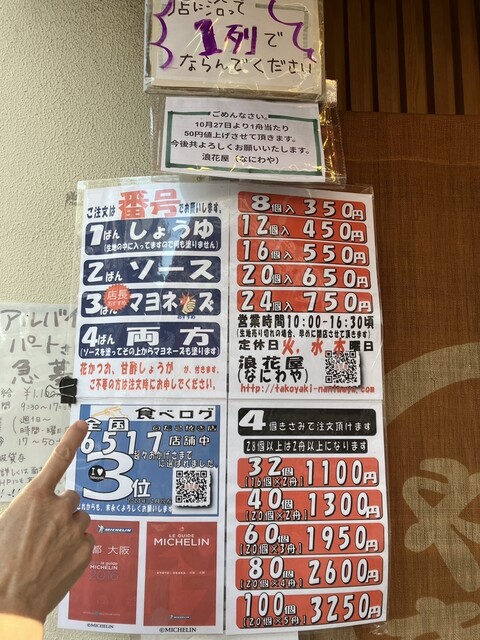 店に沿って
1列で
ならんでください
ごめんなさい。
10月27日より1舟当たり
50円値上げさせて頂きます。
今後共よろしくお願いいたします。
浪花屋（なにわや）
ご注文は番号でお願いします。
1ばん しょうゆ
(生地の中に入ってますので何も塗りません)
2ばん ソース
3ばん マヨネーズ
店長
おすすめ
4ばん 両方
(ソースを塗ってその上からマヨネーズも塗ります)
花かつお、甘酢しょうが が、付きます。
ご不要の方は注文時にお申しでください。
8個入 350円
12個入 450円
16個入 550円
20個入 650円
24個入 750円
営業時間10:00-16:30頃
(生地売り切れの場合、早めに閉店させて頂きます)
定休日 火,水,木曜日
浪花屋
(なにわや)
アルバイ
パート
急募
全国
食べログ
のたこ焼き店
6517店舗中
3位
に選ばれました
これからも、末永くよろしくお願いします
MICHELIN
都 大阪
le guide
MICHELIN
©MICHELIN
LE GUIDE
MICHELIN
©MICHELIN
4個きざみで注文頂けます
28個以上は2舟以上になります
32個 1100円
(16個×2舟)
40個 1300円
(20個×2舟)
60個 1950円
(20個×3舟)
80個 2600円
(20個×4舟)
100個 3250円
(20個×5舟)